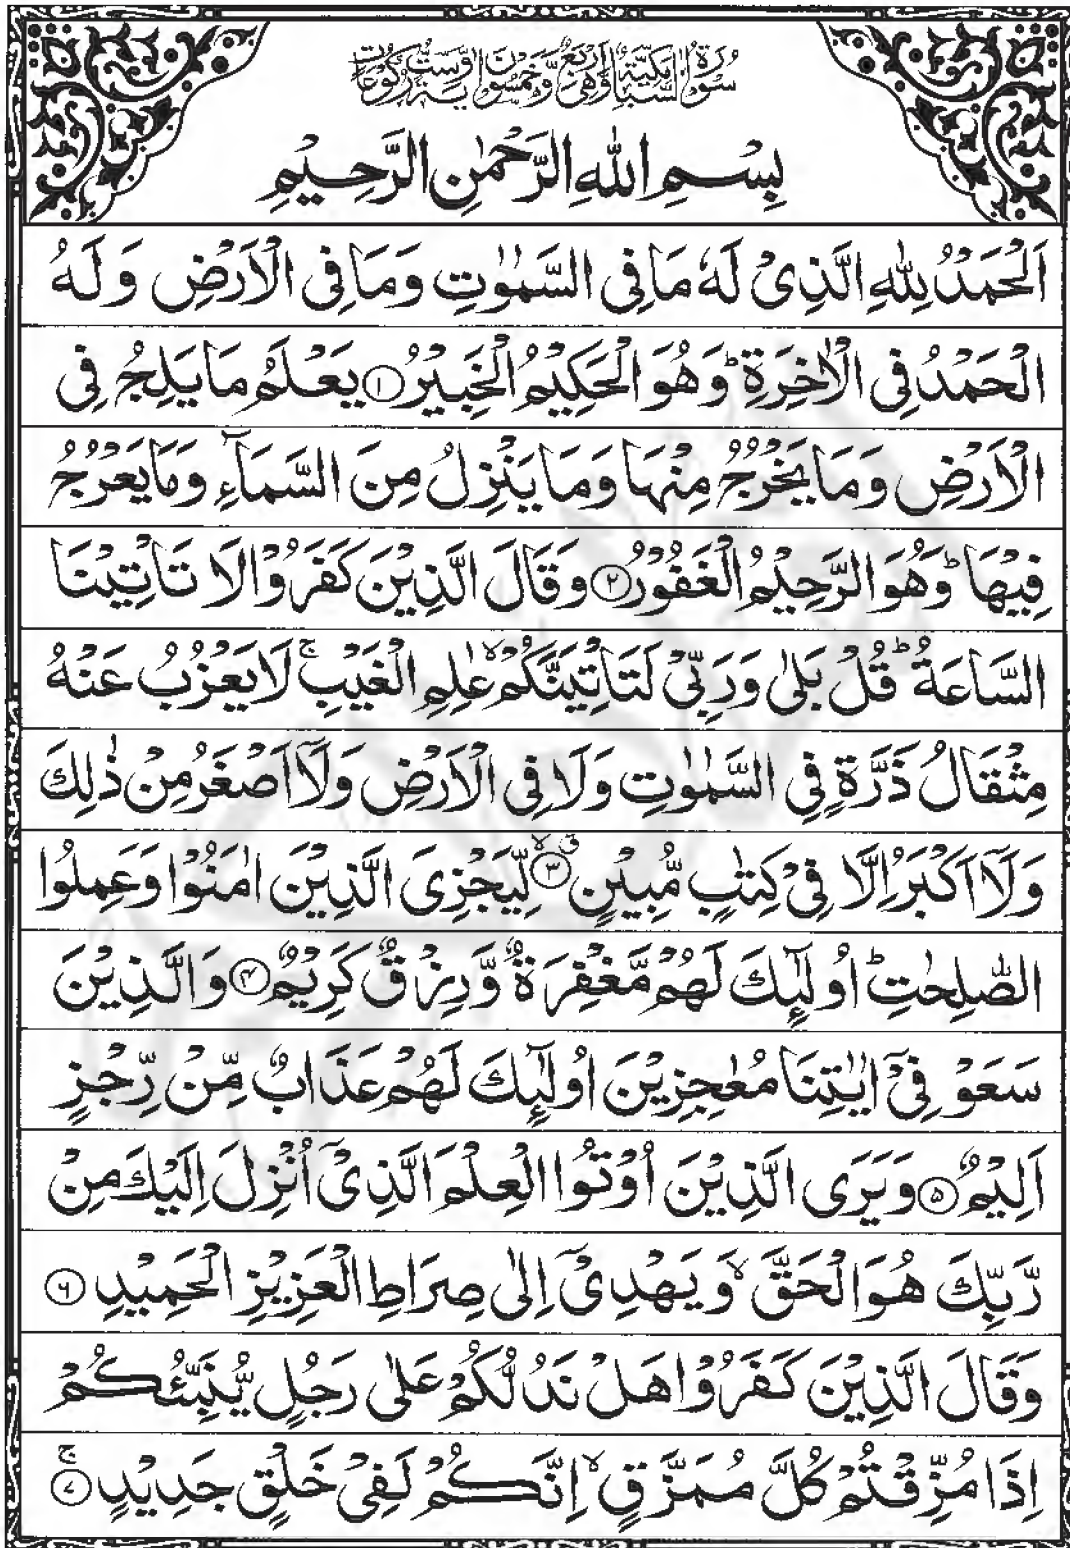 سُوْرَةُ السَّبَاِ مَكِّيَّةٌ وَّهِيَ اَرْبَعٌ وَّخَمْسُوْنَ اٰيَةً وَّسِتُّ رُكُوْعَاتٍ
بِسْمِ اللّٰهِ الرَّحْمٰنِ الرَّحِيْمِ
اَلْحَمْدُ لِلّٰهِ الَّذِیْ لَهٗ مَا فِی السَّمٰوٰتِ وَمَا فِی الْاَرْضِ وَلَهُ
الْحَمْدُ فِی الْاٰخِرَةِ ؕ وَهُوَ الْحَكِیْمُ الْخَبِیْرُ ۝۱ یَعْلَمُ مَا یَلِجُ فِی
الْاَرْضِ وَمَا یَخْرُجُ مِنْهَا وَمَا یَنْزِلُ مِنَ السَّمَآءِ وَمَا یَعْرُجُ
فِیْهَا ؕ وَهُوَ الرَّحِیْمُ الْغَفُوْرُ ۝۲ وَقَالَ الَّذِیْنَ كَفَرُوْا لَا تَاْتِیْنَا
السَّاعَةُ ؕ قُلْ بَلٰی وَرَبِّیْ لَتَاْتِیَنَّكُمْ ۙ عٰلِمِ الْغَیْبِ ۚ لَا یَعْزُبُ عَنْهُ
مِثْقَالُ ذَرَّةٍ فِی السَّمٰوٰتِ وَلَا فِی الْاَرْضِ وَلَاۤ اَصْغَرُ مِنْ ذٰلِكَ
وَلَاۤ اَكْبَرُ اِلَّا فِیْ كِتٰبٍ مُّبِیْنٍ ۝۳ۙق لِّیَجْزِیَ الَّذِیْنَ اٰمَنُوْا وَعَمِلُوا
الصّٰلِحٰتِ ؕ اُولٰٓئِكَ لَهُمْ مَّغْفِرَةٌ وَّرِزْقٌ كَرِیْمٌ ۝۴ وَالَّذِیْنَ
سَعَوْ فِیْۤ اٰیٰتِنَا مُعٰجِزِیْنَ اُولٰٓئِكَ لَهُمْ عَذَابٌ مِّنْ رِّجْزٍ
اَلِیْمٌ ۝۵ وَیَرَی الَّذِیْنَ اُوْتُوا الْعِلْمَ الَّذِیْۤ اُنْزِلَ اِلَیْكَ مِنْ
رَّبِّكَ هُوَ الْحَقَّ ۙ وَیَهْدِیْۤ اِلٰی صِرَاطِ الْعَزِیْزِ الْحَمِیْدِ ۝۶
وَقَالَ الَّذِیْنَ كَفَرُوْا هَلْ نَدُلُّكُمْ عَلٰی رَجُلٍ یُّنَبِّئُكُمْ
اِذَا مُزِّقْتُمْ كُلَّ مُمَزَّقٍ ۙ اِنَّكُمْ لَفِیْ خَلْقٍ جَدِیْدٍ ۝۷ۚ